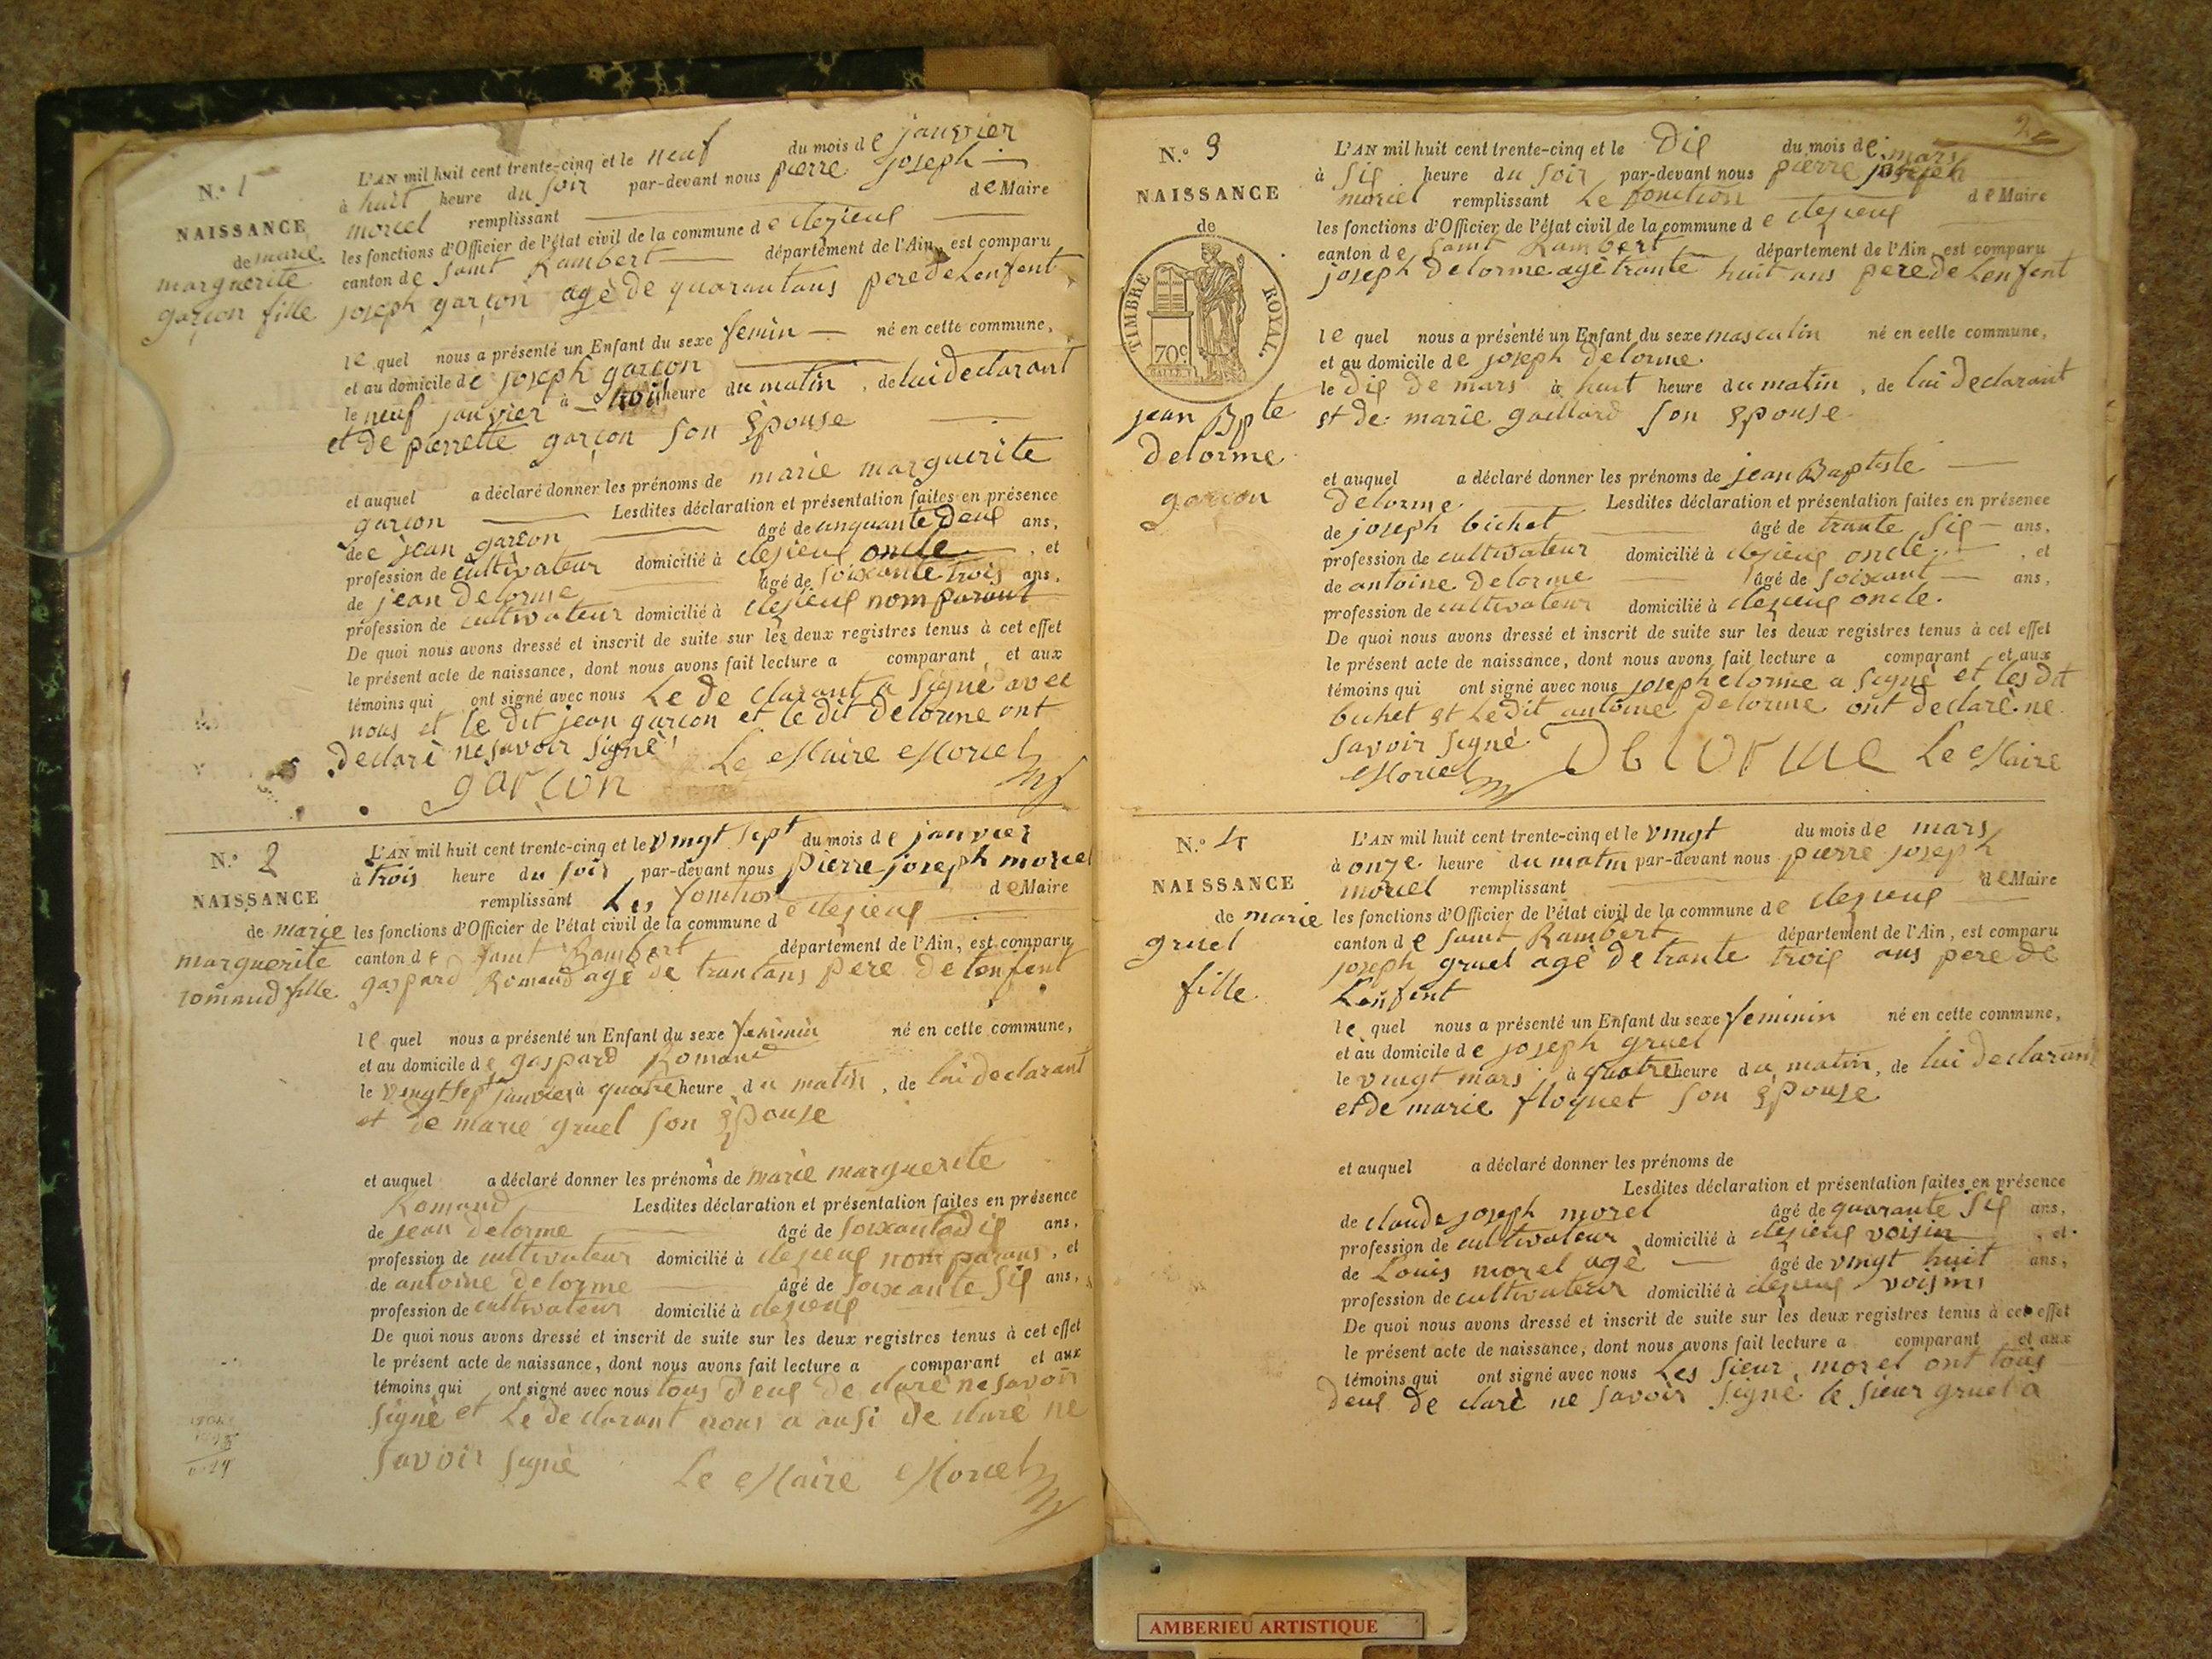 N.º 1
NAISSANCE
de marie
marguerite
garçon fille
L'AN mil huit cent trente-cinq et le neuf du mois de janvier
à huit heure du soir par-devant nous pierre joseph
morcel remplissant de Maire
les fonctions d'Officier de l'état civil de la commune de clezieux
canton de saint Rambert département de l'Ain, est comparu
joseph garçon agé de quarantans pere de Lenfent
le quel nous a présenté un Enfant du sexe femin né en cette commune,
et au domicile de joseph garçon
le neuf janvier à trois heure du matin, de lui declarant
et de pierrette garçon son Epouse
et auquel a déclaré donner les prénoms de marie marguerite
garçon Lesdites déclaration et présentation faites en présence
de jean garçon âgé de cinquante deux ans,
profession de cultivateur domicilié à clezieux oncle, et
de jean delorme âgé de soixante trois ans,
profession de cultivateur domicilié à clezieux nom parant
De quoi nous avons dressé et inscrit de suite sur les deux registres tenus à cet effet
le présent acte de naissance, dont nous avons fait lecture a comparant et aux
témoins qui ont signé avec nous Le de clarant a signé avec
nous et le dit jean garçon et le dit delorme ont
declaré ne savoir signé
garçon Le Maire Morcel
N.º 2
NAISSANCE
de marie
marguerite
romand fille
L'AN mil huit cent trente-cinq et le vingt sept du mois de janvier
à trois heure du soir par-devant nous pierre joseph morcel
remplissant Les fonction de Maire
les fonctions d'Officier de l'état civil de la commune de clezieux
canton de saint Rambert département de l'Ain, est comparu
gaspard Romand agé de trantans pere de lenfent
le quel nous a présenté un Enfant du sexe feminin né en cette commune,
et au domicile de gaspard Romand
le vingt sept janvier à quatre heure du matin, de lui declarant
et de marie gruel son Epouse
et auquel a déclaré donner les prénoms de marie marguerite
Romand Lesdites déclaration et présentation faites en présence
de jean delorme âgé de soixante dix ans,
profession de cultivateur domicilié à clezieux nom parans, et
de antoine delorme âgé de soixante six ans,
profession de cultivateur domicilié à clezieux
De quoi nous avons dressé et inscrit de suite sur les deux registres tenus à cet effet
le présent acte de naissance, dont nous avons fait lecture a comparant et aux
témoins qui ont signé avec nous tous deux de claré ne savoir
signé et Le de clarant nous a ausi de claré ne
savoir signé Le Maire Morcel
2
N.º 3
NAISSANCE
de
TIMBRE ROYAL.
70c
jean Bpte
delorme
garçon
L'AN mil huit cent trente-cinq et le Dix du mois de mars
à six heure du soir par-devant nous pierre joseph
morcel remplissant Le fonction de Maire
les fonctions d'Officier de l'état civil de la commune de clezieux
canton de saint Rambert département de l'Ain, est comparu
joseph delorme agé trante huit ans pere de Lenfent
le quel nous a présenté un Enfant du sexe masculin né en celle commune,
et au domicile de joseph delorme
le dix de mars à huit heure du matin, de lui declarant
et de marie gaillard son Epouse
et auquel a déclaré donner les prénoms de jean Baptiste
delorme Lesdites déclaration et présentation faites en présence
de joseph bichet âgé de trante six ans,
profession de cultivateur domicilié à clezieux oncle, et
de antoine delorme âgé de soixant ans,
profession de cultivateur domicilié à clezieux oncle.
De quoi nous avons dressé et inscrit de suite sur les deux registres tenus à cet effet
le présent acte de naissance, dont nous avons fait lecture a comparant et aux
témoins qui ont signé avec nous joseph elorme a signé et les dit
bichet et Le dit antoine delorme ont declaré ne
savoir signé Delorme Le Maire
Morcel
N.º 4
NAISSANCE
de marie
gruel
fille
L'AN mil huit cent trente-cinq et le vingt du mois de mars
à onze heure du matin par-devant nous pierre joseph
morcel remplissant de Maire
les fonctions d'Officier de l'état civil de la commune de clezieux
canton de saint Rambert département de l'Ain, est comparu
joseph gruel agé de trante trois ans pere de
Lenfent
le quel nous a présenté un Enfant du sexe feminin né en cette commune,
et au domicile de joseph gruel
le vingt mars à quatre heure du matin, de lui declarant
et de marie floquet son Epouse
et auquel a déclaré donner les prénoms de
Lesdites déclaration et présentation faites en présence
de claude joseph morel âgé de quarante six ans,
profession de cultivateur domicilié à clezieux voisin, et
de Louis morel agé âgé de vingt huit ans,
profession de cultivateur domicilié à clezieux voisins
De quoi nous avons dressé et inscrit de suite sur les deux registres tenus à cet effet
le présent acte de naissance, dont nous avons fait lecture a comparant et aux
témoins qui ont signé avec nous Les sieur morel ont tous
deux de claré ne savoir signé le sieur gruel a
AMBERIEU ARTISTIQUE